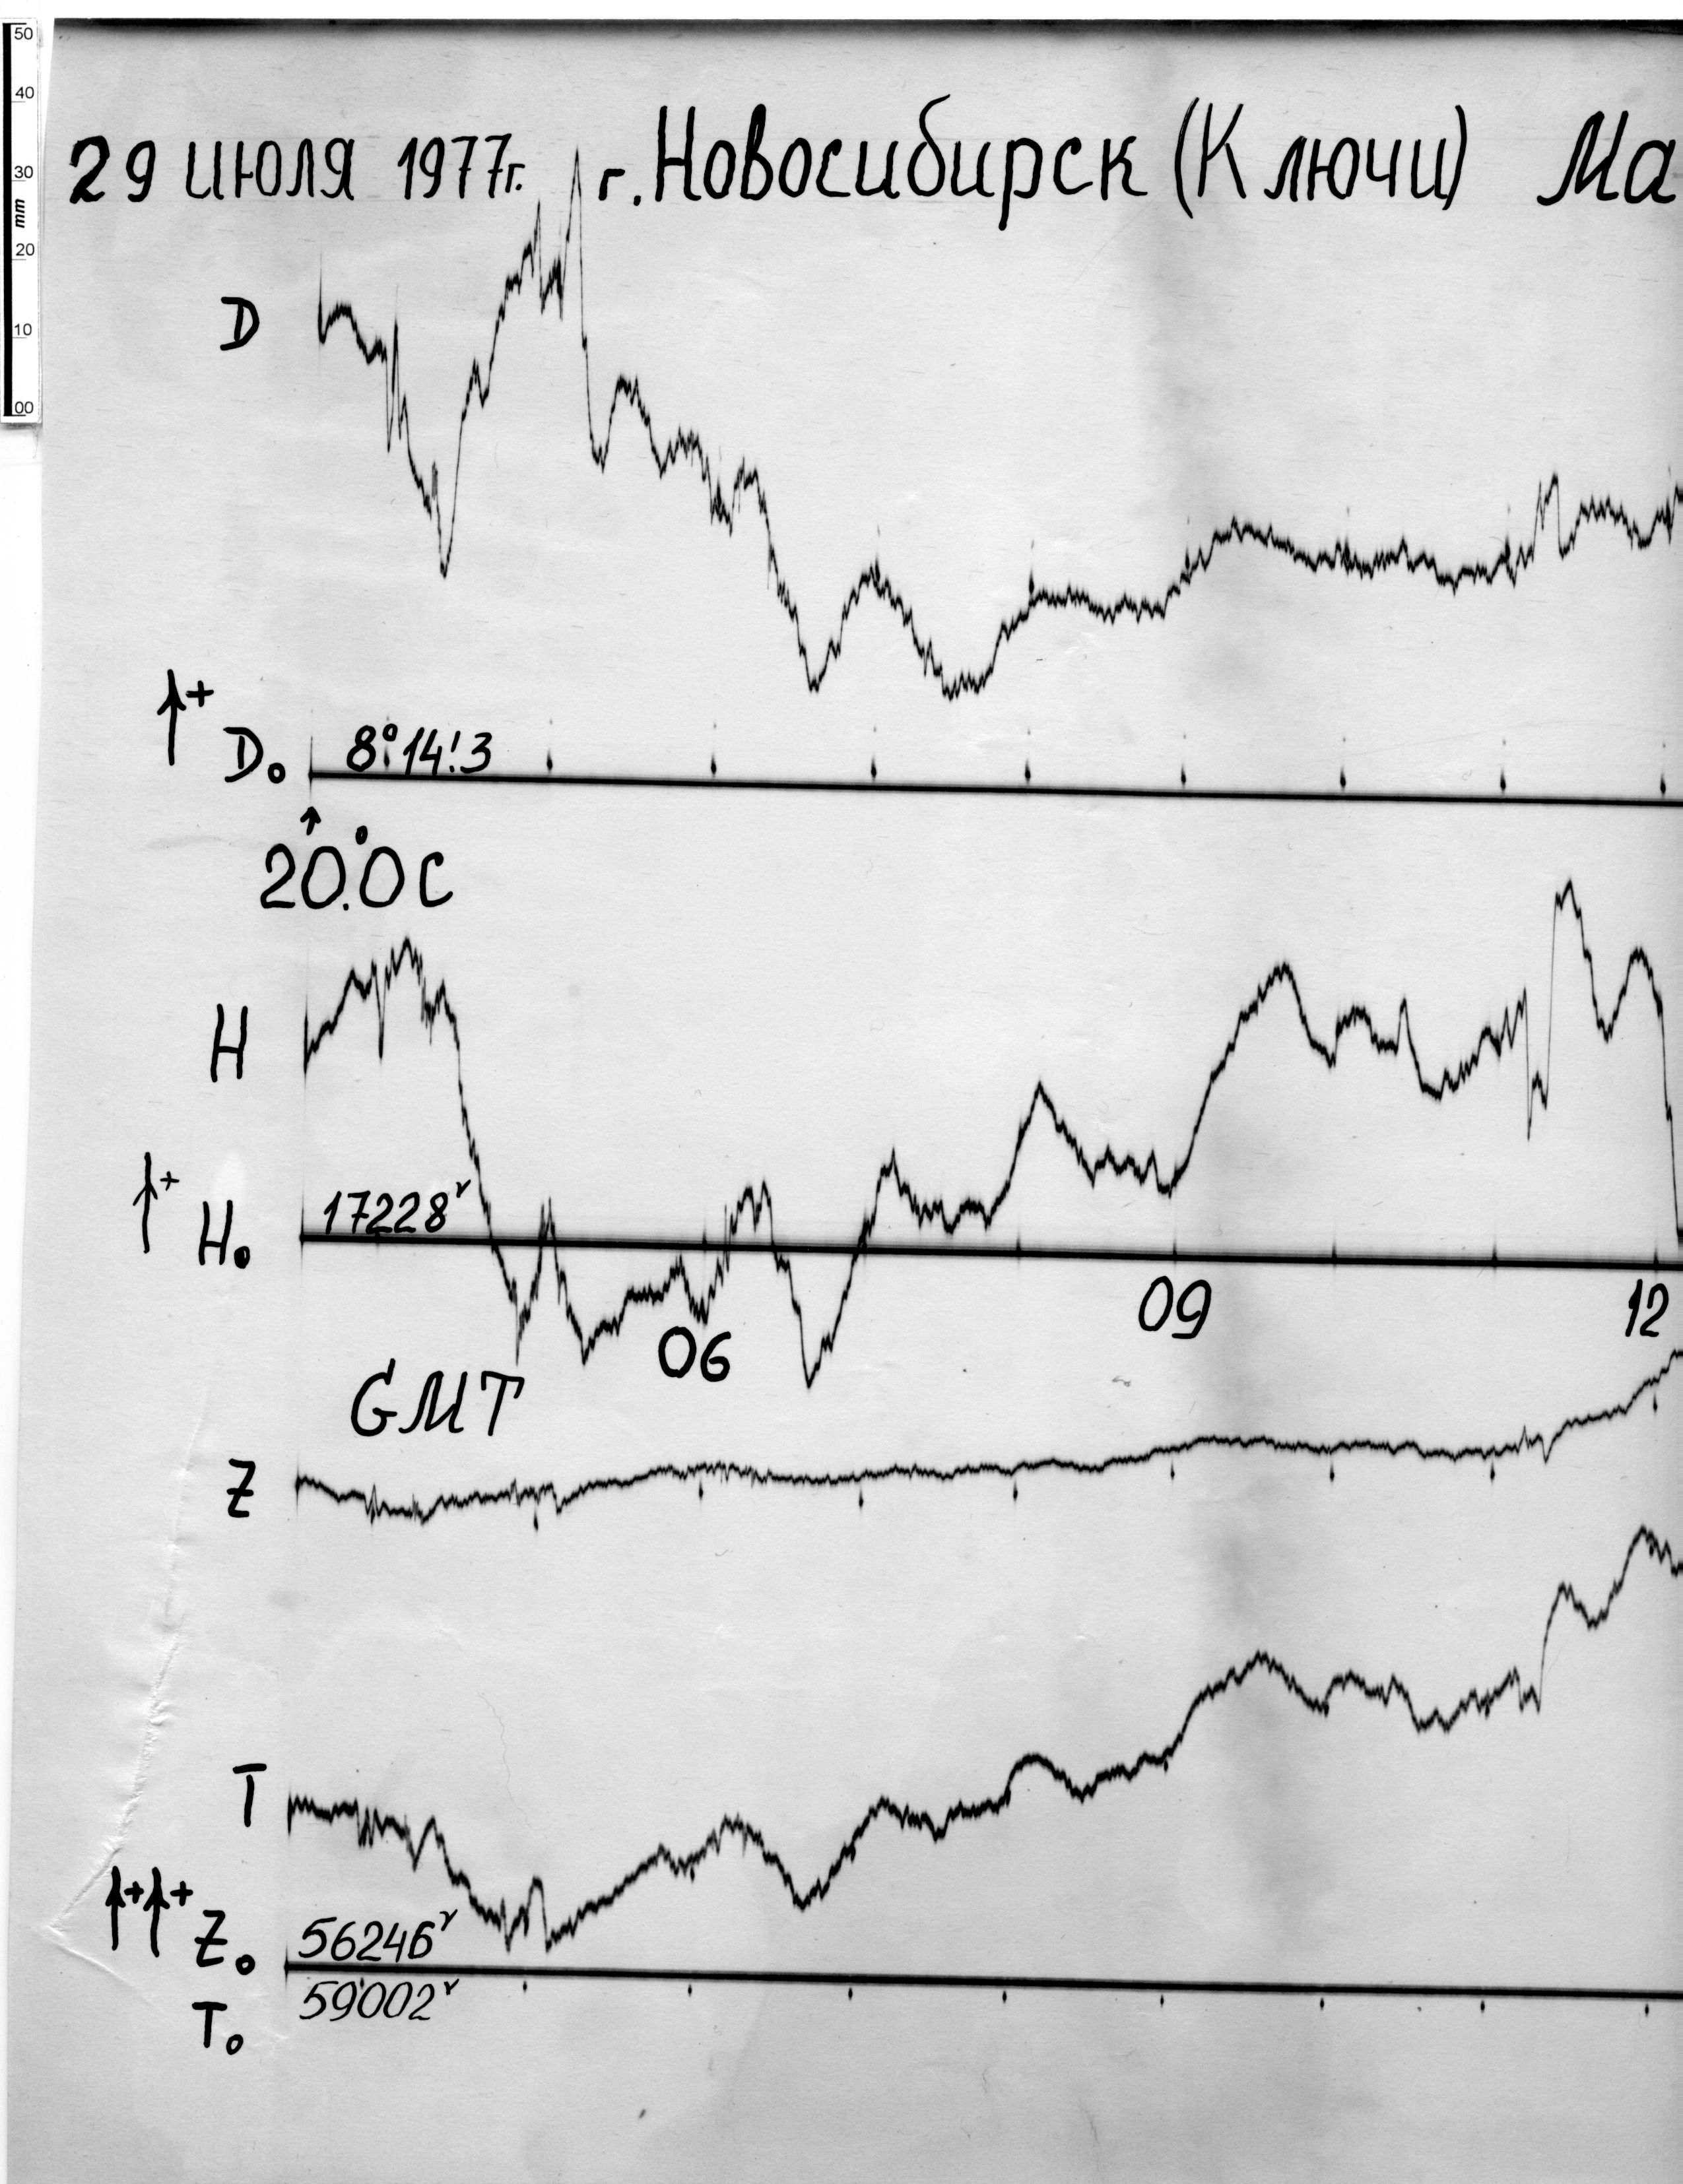 50
40
30
mm
20
10
00
29 июля 1977г. г. Новосибирск (Ключи) Ма
D
+
D₀ 8°14!3
20.°0 C
H
+
H₀ 17228ᵞ
09
12
06
GMT
Z
T
+ +
Z₀ 56246ᵞ
T₀ 59002ᵞ